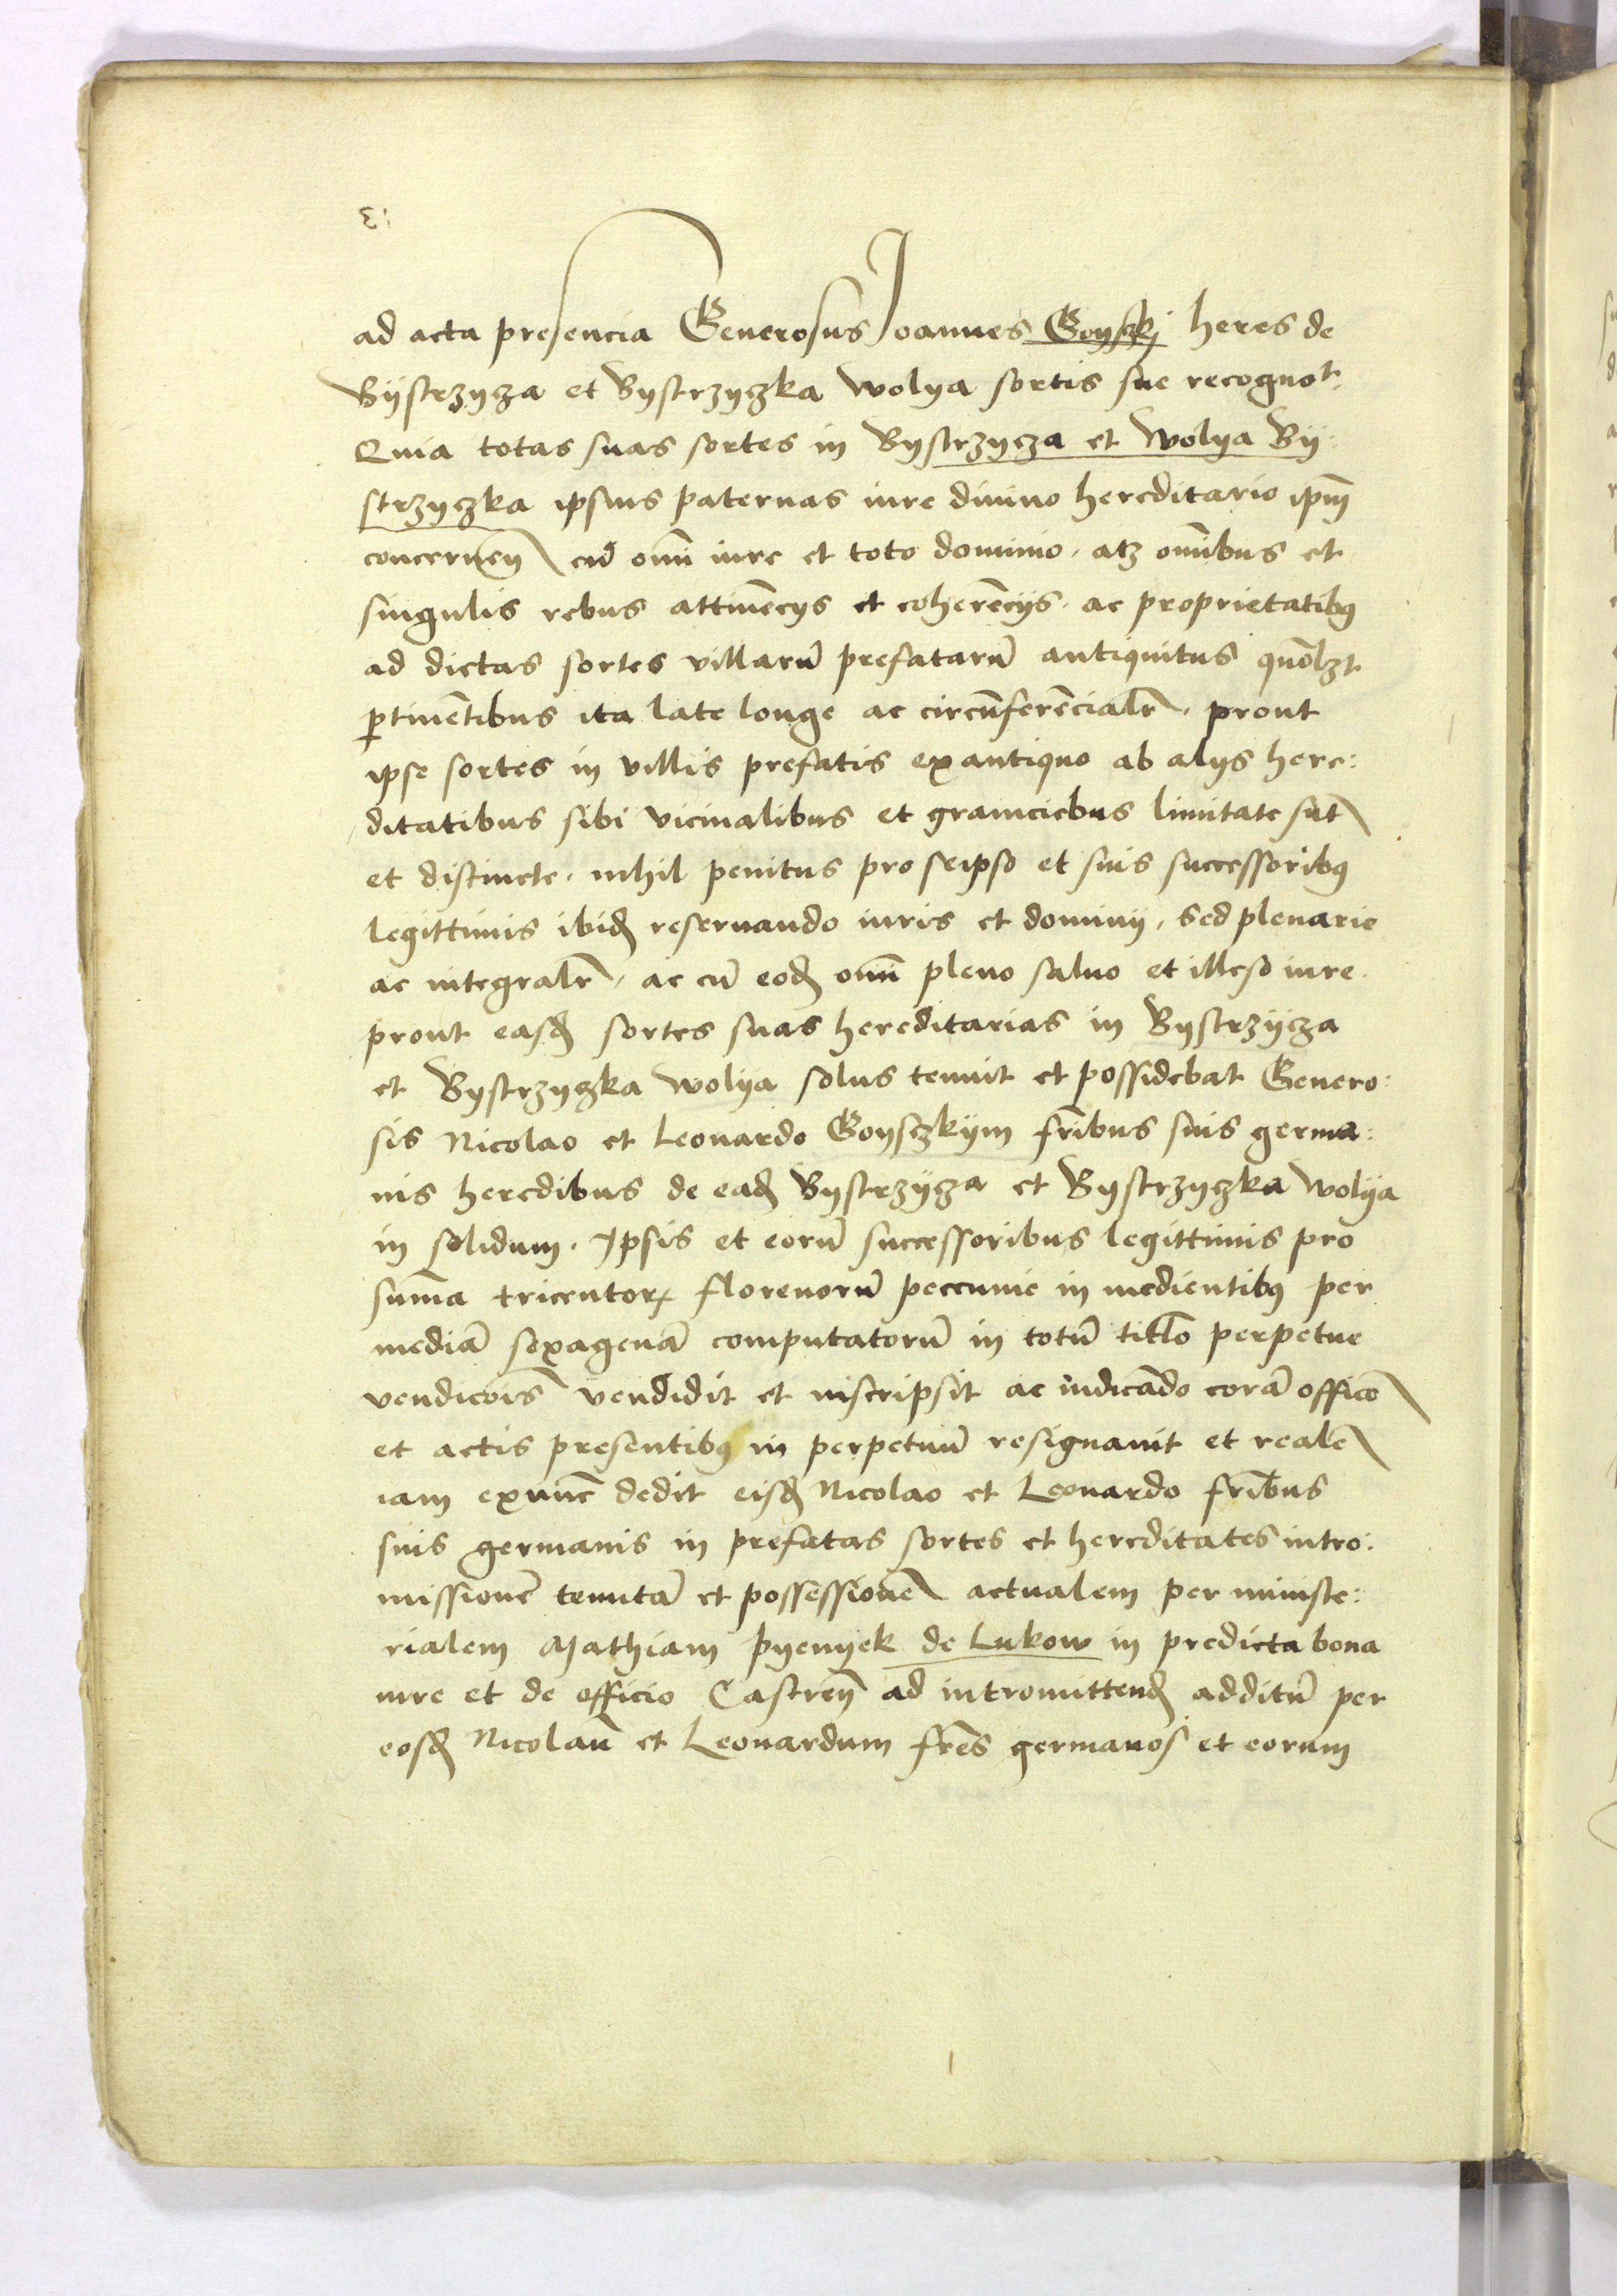 ad acta presencia Generosus Ioannes Goyski heres de
Bystrzycza et Bystrzyczka wolya sortis sue recognot:
Quia totas suas sortes in Bystrzycza et wolya By:
strzyczka ipsius paternas iure diuino hereditario ipm̄
concernen̄ cū om̄i iure et toto dominio, atqʒ om̄ibus et
singulis rebus attinēcys et coherēcys, ac proprietatibꝯ
ad dictas sortes villarū prefatarū antiquitus quōlʒt
ꝑtinētibus ita late longe ac circūferēcialr̄, prout
ipse sortes in villis prefatis ex antiquo ab alys here:
ditatibus sibi vicinalibus et graniciebus limitate sūt
et distincte, nihil penitus pro seipso et suis successoribꝯ
legittimis ibid̄ reseruando iuris et dominy, Sed plenarie
ac integralr̄, ac cū eod̄ om̄i pleno saluo et illeso iure
prout easd̄ sortes suas hereditarias in Bystrzycza
et Bystrzyczka wolya solus tenuit et possidebat Genero:
sis Nicolao et Leonardo Goysczkym fr̄ibus suis germa:
nis heredibus de ead̄ Bystrzycza et Bystrzyczka wolya
in solidum, Ipsis et eorū successoribus legittimis pro
sum̄a tricentoꝝ florenorū peccunie in medientibꝯ per
mediā sexagenā computatorū in totū titl̄o perpetue
vendicōis vendidit et inscripsit ac iudicādo corā officō
et actis presentibꝯ in perpetuū resignauit et realē
iam exnūc dedit eisd̄ Nicolao et Leonardo fr̄ibus
suis germanis in prefatas sortes et hereditates intro:
missionē tenutā et possessionē actualem per ministe:
rialem Mathiam Pyenyek de Lukow in predicta bona
iure et de officio Castren̄ ad intromittend̄ additū per
eosd̄ Nicolaū et Leonardum fr̄es germanos et eorum